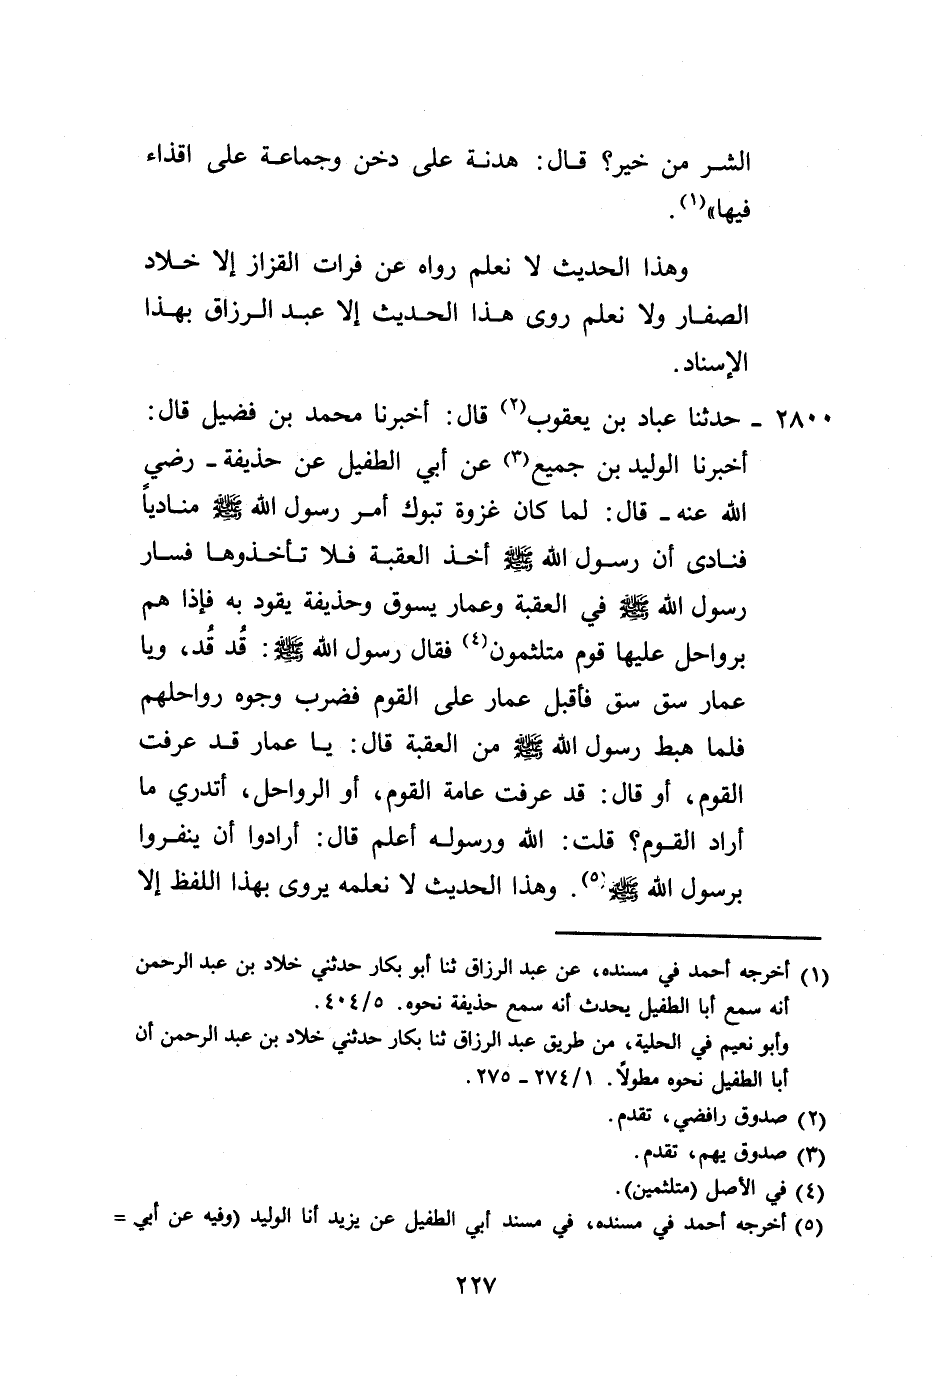 الشر من خير؟ قال: هدنة على دخن وجماعة على اقذاء
فيها»(١).
وهذا الحديث لا نعلم رواه عن فرات القزاز إلا خلاد
الصفار ولا نعلم روى هذا الحديث إلا عبد الرزاق بهذا
الإسناد.
٢٨٠٠ ـ حدثنا عباد بن يعقوب(٢) قال: أخبرنا محمد بن فضيل قال:
أخبرنا الوليد بن جميع(٣) عن أبي الطفيل عن حذيفة ـ رضي
الله عنه ـ قال: لما كان غزوة تبوك أمر رسول الله ﷺ منادياً
فنادى أن رسول الله ﷺ أخذ العقبة فلا تأخذوها فسار
رسول الله ﷺ في العقبة وعمار يسوق وحذيفة يقود به فإذا هم
برواحل عليها قوم متلثمون(٤) فقال رسول الله ﷺ: قُد قُد، ويا
عمار سق سق فأقبل عمار على القوم فضرب وجوه رواحلهم
فلما هبط رسول الله ﷺ من العقبة قال: يا عمار قد عرفت
القوم، أو قال: قد عرفت عامة القوم، أو الرواحل، أتدري ما
أراد القوم؟ قلت: الله ورسوله أعلم قال: أرادوا أن ينفروا
برسول الله ﷺ(٥). وهذا الحديث لا نعلمه يروى بهذا اللفظ إلا
(١) أخرجه أحمد في مسنده، عن عبد الرزاق ثنا أبو بكار حدثني خلاد بن عبد الرحمن
أنه سمع أبا الطفيل يحدث أنه سمع حذيفة نحوه. ٤٠٤/٥.
وأبو نعيم في الحلية، من طريق عبد الرزاق ثنا بكار حدثني خلاد بن عبد الرحمن أن
أبا الطفيل نحوه مطولاً. ٢٧٤/١ ـ ٢٧٥.
(٢) صدوق رافضي، تقدم.
(٣) صدوق يهم، تقدم.
(٤) في الأصل (متلثمين).
(٥) أخرجه أحمد في مسنده، في مسند أبي الطفيل عن يزيد أنا الوليد (وفيه عن أبي =
٢٢٧